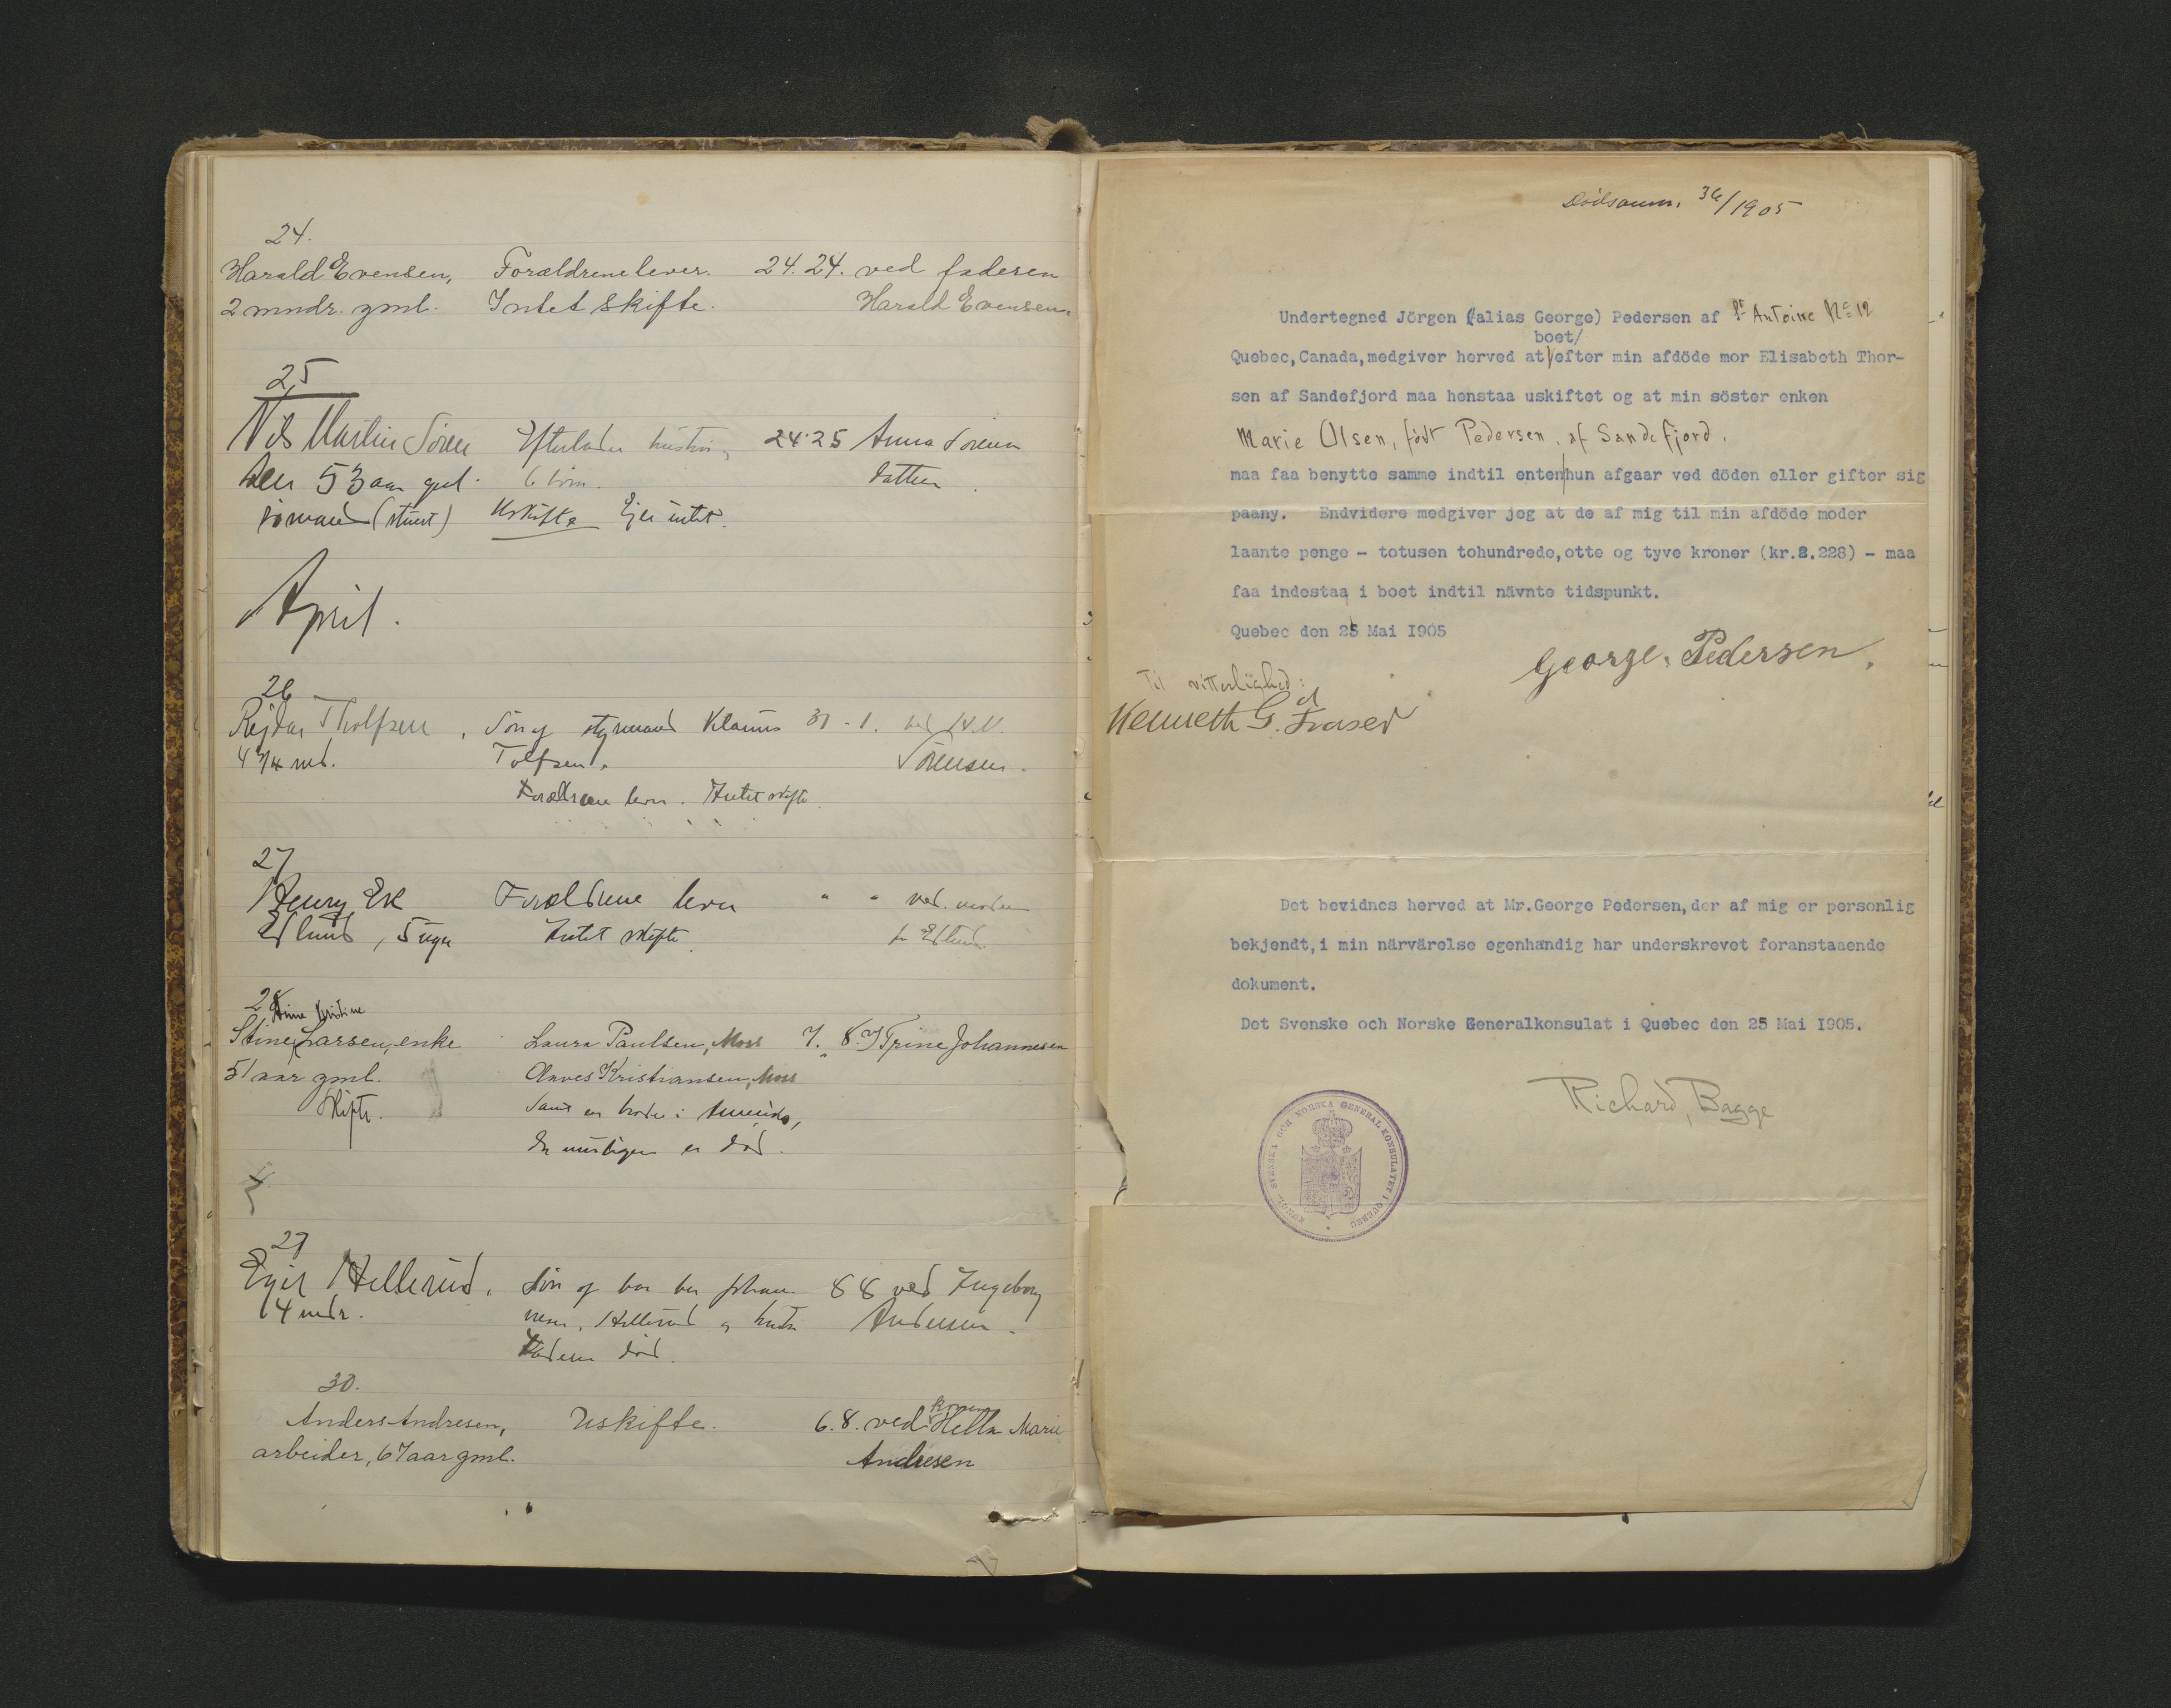 24.
Harald Evensen, Forældrene lever. 24. 24. ved faderen
2 mndr. gml. Intet skifte. Harald Evensen.
25
Nils Martin Søren
sen 53 aar gml. 6 børn. datter
Efterlader hustru, 24.25 Anna Sørensen
sømand (stuert) Uskifte Ejer intet.
April.
26
Rejdar Tholfsen, Søn af styrmand Klaus 31 - 1. ved N.M.
4 3/4 md. Tolfsen. Sørensen.
Forældrene lever. Intet skifte.
27
Henry Ek Forældrene lever " " ved moderen
Eflund, 5 uger Intet skifte fr Eflund
28
Anne Kristine
Stine Larsen, enke Laura Paulsen, Moss 7. 8. Trine Johannesen
51 aar gml. Anves Kristiansen, Moss
Skifte. Samt en broder i Amerika,
der muligens er død.
29
Egil Hellerud. Søn af
14 mdr. nesen. Hellerud og hustru Andersen.
8 8 ved Ingeborg
Faderen død.
30.
Anders Andresen, Uskifte. 6.8. ved konen Hella Marie
arbeider, 67 aar gml. Andresen
Dödsanm. 36/1905
Undertegned Jörgen (alias George) Pedersen af St Antoine No 12
boet/
Quebec, Canada, medgiver herved at/efter min afdöde mor Elisabeth Thor-
sen af Sandefjord maa henstaa uskiftet og at min söster enken
Marie Olsen, född Pedersen, af Sandefjord.
maa faa benytte samme indtil enten/hun afgaar ved döden eller gifter sig
paany. Endvidere medgiver jeg at de af mig til min afdöde moder
laante penge - totusen tohundrede, otte og tyve kroner (kr.2.228) - maa
faa indestaa i boet indtil nävnte tidspunkt.
Quebec den 25 Mai I905
George. Pedersen.
Til vitterlighed:
Kenneth G. Fraser
Det bevidnes herved at Mr. George Pedersen, der af mig er personlig
bekjendt, i min närvärelse egenhändig har underskrevet foranstaaende
dokument.
Det Svenske och Norske Generalkonsulat i Quebec den 25 Mai I905.
Richard, Bagge
KONGL. SVENSKA OCH NORSKA GENERAL KONSULATET I QUEBEC